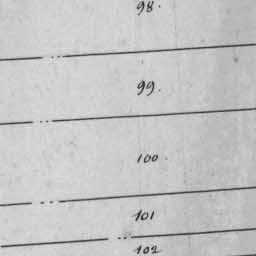 98.
99.
100.
101
102